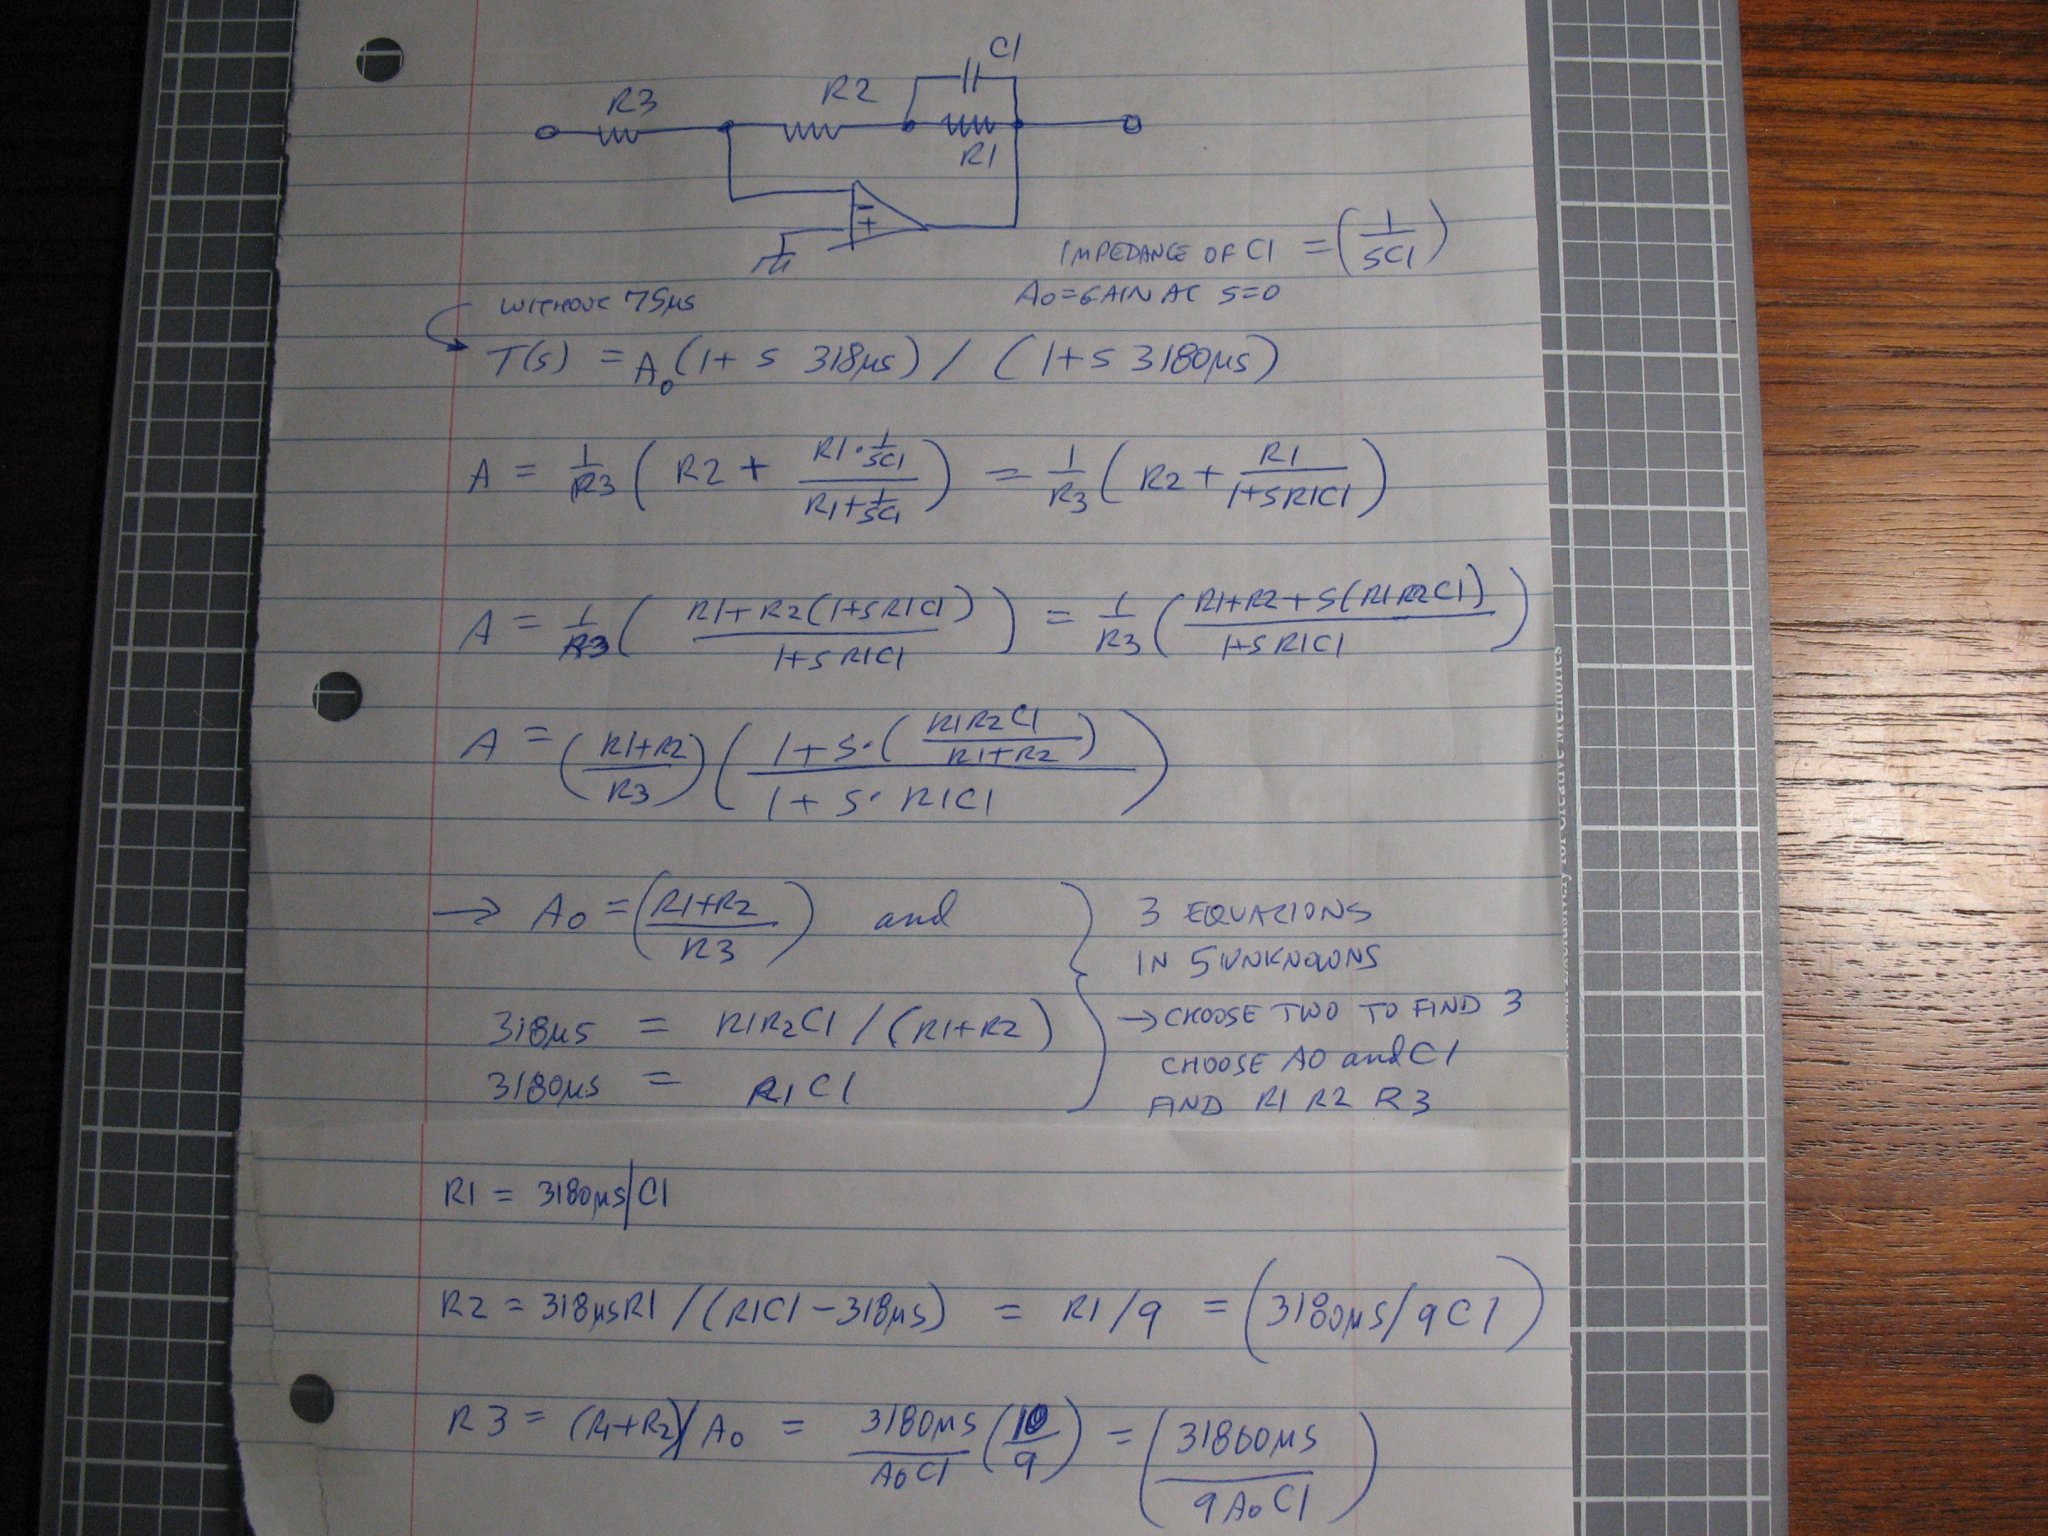 C1
R3
R2
R1
-
+
IMPEDANCE OF C1 = (1/SC1)
A0 = GAIN AT S=0
WITHOUT 75µs
T(s) = A0 (1+ S 318µs) / (1+ S 3180µs)
A = 1/R3 ( R2 + (R1·1/SC1)/(R1+1/SC1) ) = 1/R3 ( R2 + R1/(1+SR1C1) )
A = 1/R3 ( (R1+R2(1+SR1C1))/(1+SR1C1) ) = 1/R3 ( (R1+R2+S(R1R2C1))/(1+SR1C1) )
A = ((R1+R2)/R3) ( (1+S·(R1R2C1/(R1+R2)))/(1+S·R1C1) )
→ A0 = ((R1+R2)/R3) and
318µs = R1R2C1/(R1+R2)
3180µs = R1C1
3 EQUATIONS
IN 5 UNKNOWNS
→ CHOOSE TWO TO FIND 3
CHOOSE A0 and C1
FIND R1 R2 R3
R1 = 3180µs/C1
R2 = 318µsR1/(R1C1-318µs) = R1/9 = (3180µs/9C1)
R3 = (R1+R2)/A0 = 3180µs/A0C1 (10/9) = (31800µs/9A0C1)
Exclusively for Creative Memories